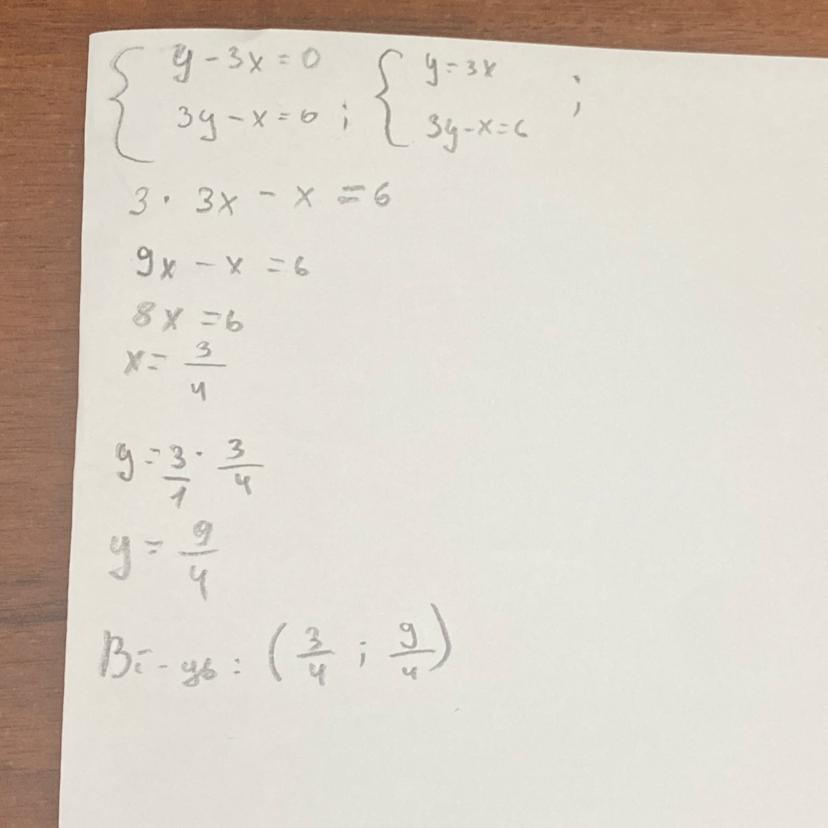 { y - 3x = 0 { y = 3x ;
3y - x = 6 ; 3y - x = 6
3 · 3x - x = 6
9x - x = 6
8x = 6
x = 3/4
y = 3/1 · 3/4
y = 9/4
Ві-дь: (3/4 ; 9/4)